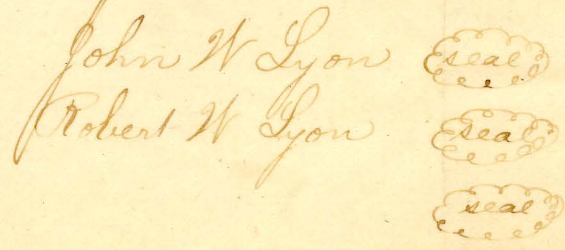 John W Lyon seal
Robert W Lyon seal
seal